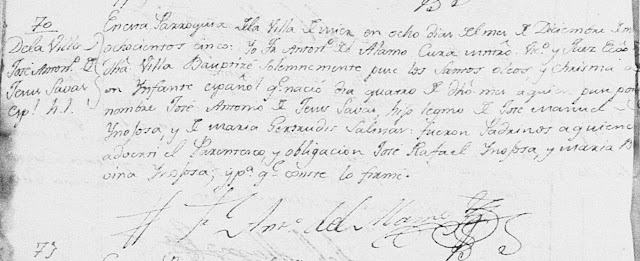 70
De la Villa
José Antonº. de
Jesus Sabas
Espl. h. l.
En esta Parroquia de la Villa de Mier en ocho dias del mes de Diciembre de mi
ochocientos cinco: Yo Fr. Antonº. del Alamo Cura Vicº. y Juez Ecco
dha. Villa Bauptizé Solemnemente puse los Santos oleos y Chrisma
un Infante español q. nació dia quatro de dho mes aquien puse por
nombre José Antonio de Jesus Sabas hijo legmo de José Manuel
Ynojosa, y de Maria Gertrudis Salinas: fueron Padrinos a quiene
adverti el Parentesco y obligacion José Rafael Ynojosa, y Maria
vina Ynojosa; y pª. qe. conste lo firmé.
Fr. Antº. del Alamo
73